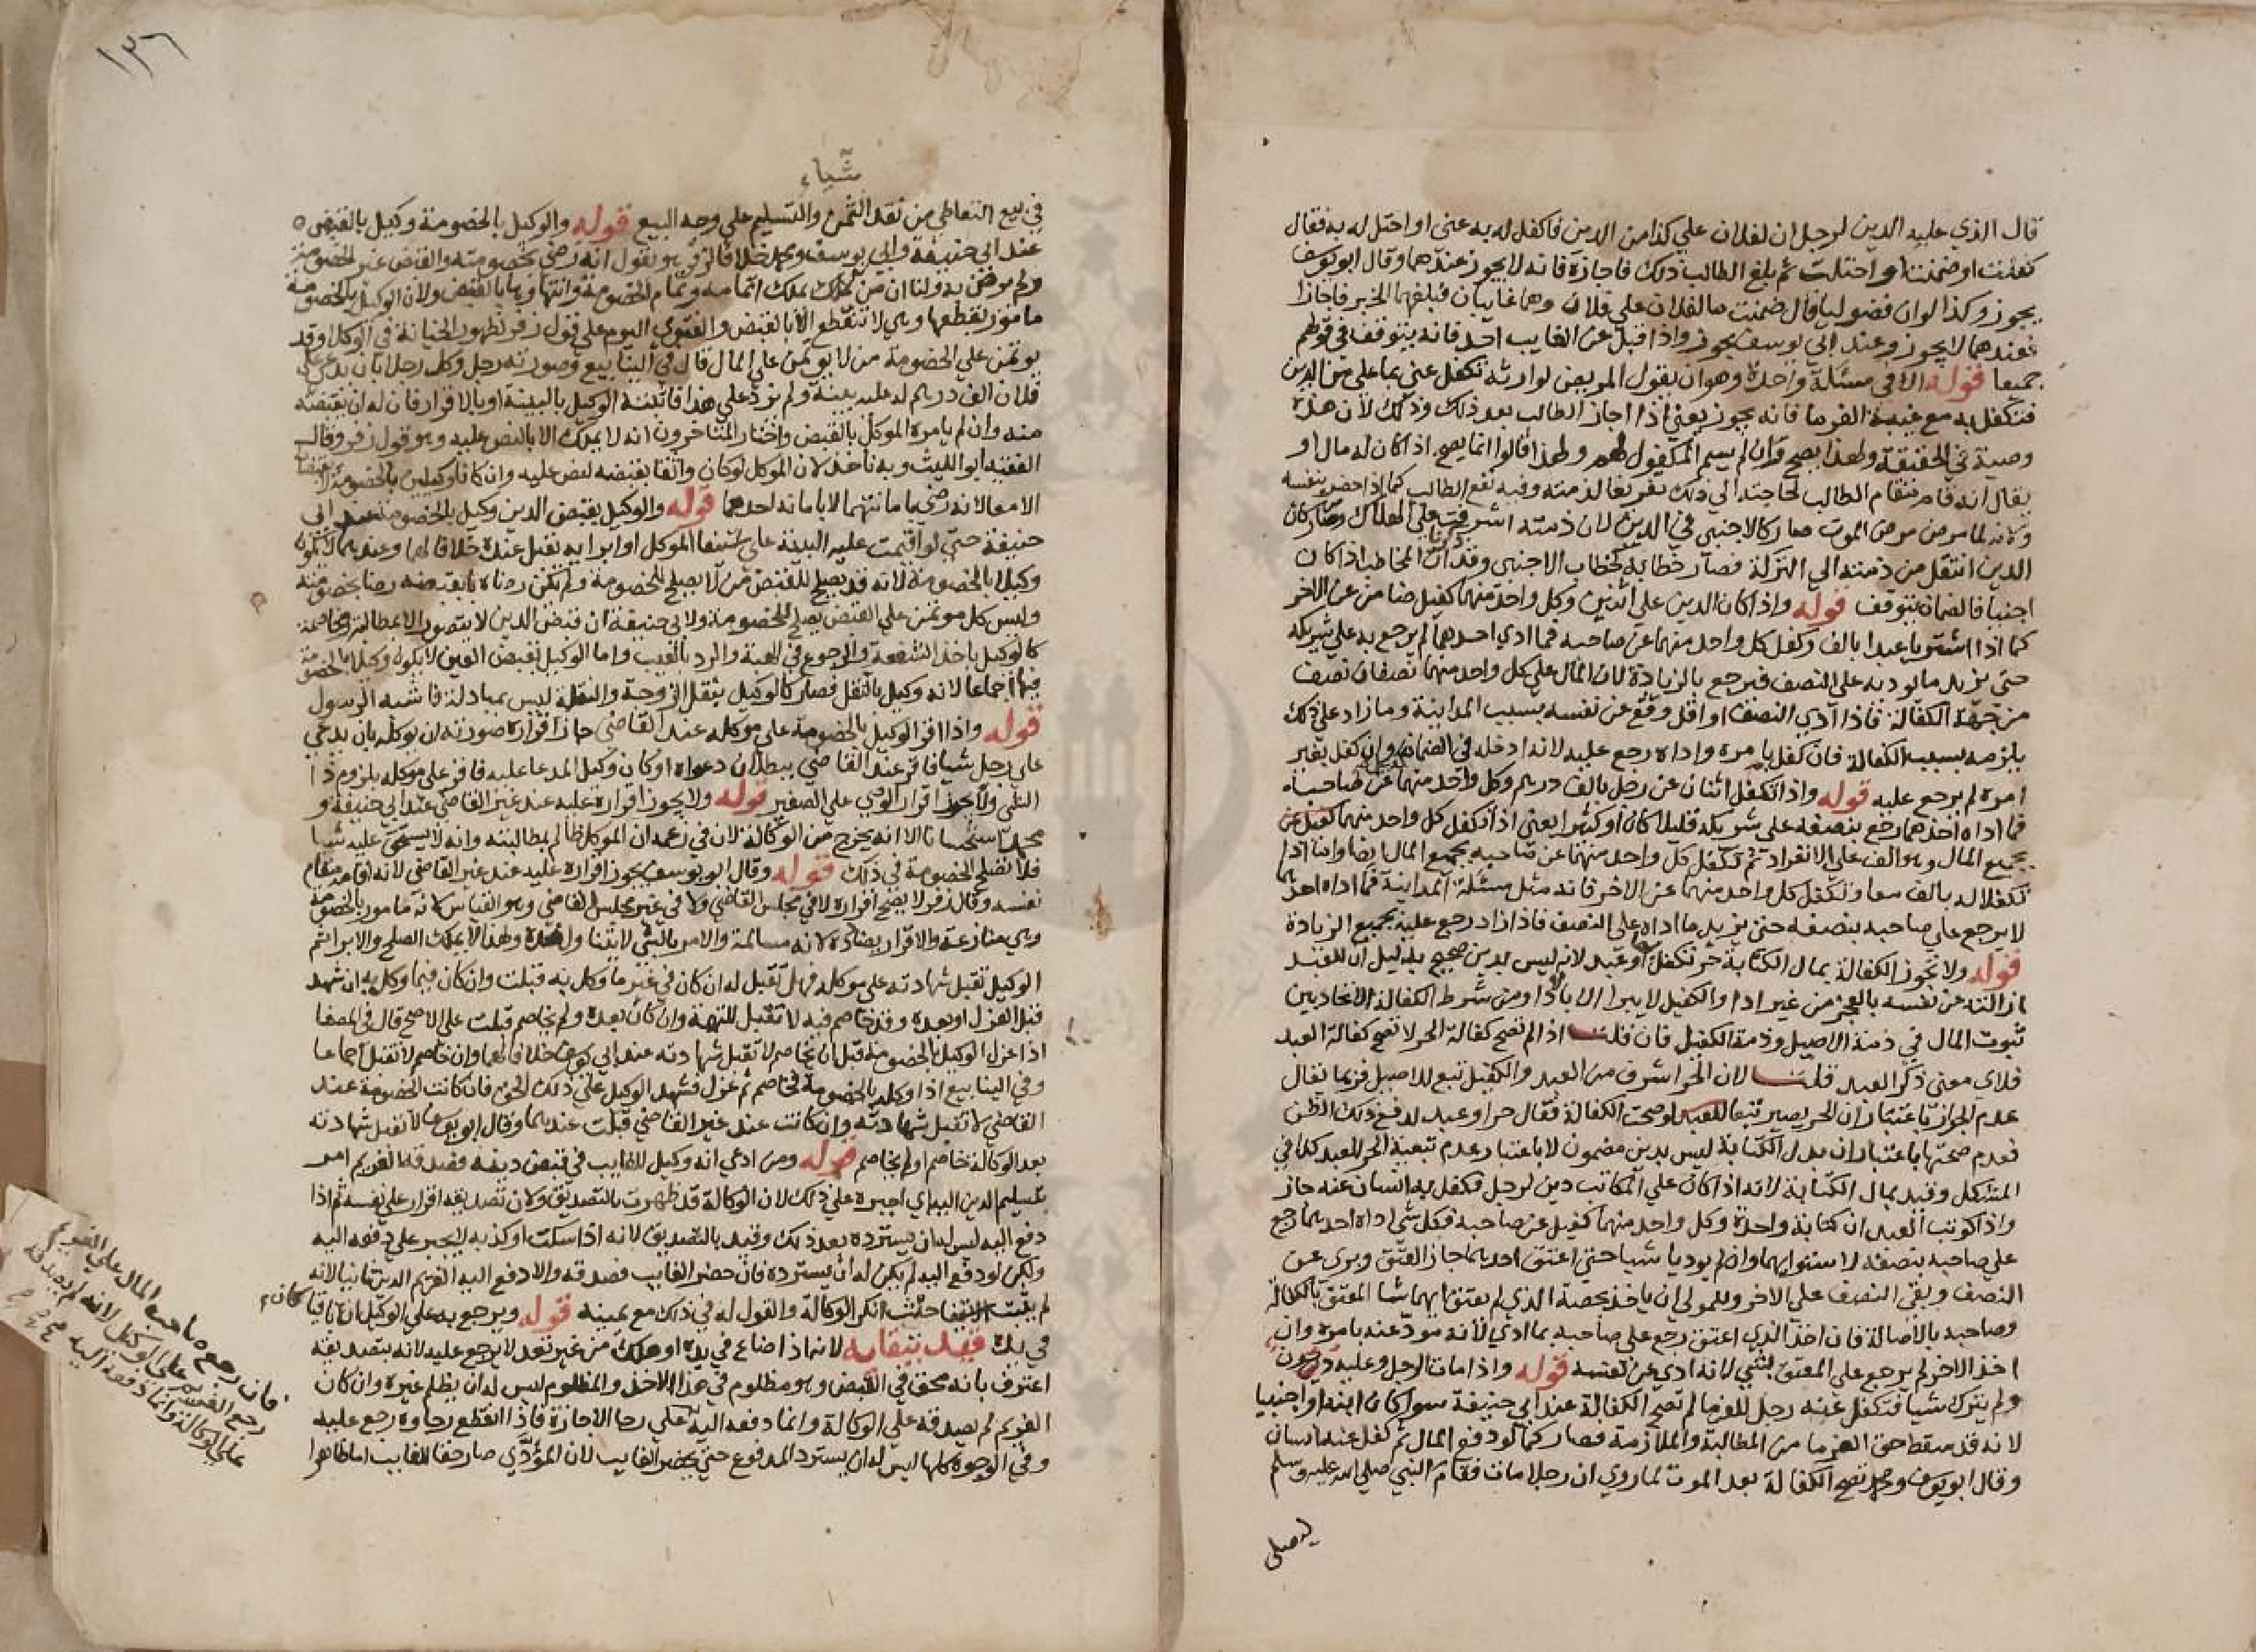 قال الذي عليه الدين لرجل ان لفلان علي كذا من الدين فاكفل له به عني او احتل له به فقال
كفلت او ضمنت او احتلت ثم بلغ الطالب ذلك فاجازه فانه لا يجوز عندهما وقال ابو يوسف
يجوز وكذا لو ان فضوليا قال ضمنت ما لفلان علي فلان وهما غايبان فبلغهما الخبر فاجازا
فعندهما لا يجوز وعند ابي يوسف يجوز واذا قبل عن الغايب احد فانه يتوقف في قولهم
جميعا قوله الا في مسئلة واحدة وهو ان يقول المريض لوارثه تكفل عني بما علي من الدين
فتكفل به مع غيبة الغرما فانه يجوز يعني اذا اجاز الطالب بعد ذلك وذلك لان هذه
وصية في الحقيقة ولهذا يصح وان لم يسم المكفول لهم ولهذا قالوا انما يصح اذا كان له مال او
يقال انه قام مقام الطالب لحاجته الي ذلك تفريغا لذمته وفيه نفع الطالب كما اذا حضر بنفسه
ولانه لما مرض مرض الموت صار كالاجنبي في الدين لان ذمته اشرفت علي الهلاك وصار كان
الدين انتقل من ذمته الي التركة فصار خطابه كخطاب الاجنبي وقد ذكرنا ان المخاطب اذا كان
اجنبيا فالضمان يتوقف قوله واذا كان الدين علي اثنين وكل واحد منهما كفيل ضامن عن الاخر
كما اذا اشتريا عبدا بالف وكفل كل واحد منهما عن صاحبه فما ادي احدهما لم يرجع به علي شريكه
حتي يزيد ما يوديه علي النصف فيرجع بالزيادة لان المال علي كل واحد منهما نصفان نصف
من جهة الكفالة فاذا ادي النصف او اقل وقع عن نفسه بسبب المداينة وما زاد علي ذلك
يلزمه بسبب الكفالة فان كفل بامره واداه رجع عليه لانه ادخله في الضمان وان كفل بغير
امره لم يرجع عليه قوله واذا تكفل اثنان عن رجل بالف درهم وكل واحد منهما عن صاحبه
فما اداه احدهما رجع بنصفه علي شريكه قليلا كان او كثيرا يعني اذا تكفل كل واحد منهما كفيل عن
بجميع المال وهو الف علي الانفراد ثم تكفل كل واحد منهما عن صاحبه بجميع المال ايضا واما اذا
تكفلا له بالف معا وتكفل كل واحد منهما عن الاخر فانه مثل مسئلة المداينة فما اداه احدهما
لا يرجع علي صاحبه بنصفه حتي يزيد ما اداه علي النصف فاذا زاد رجع عليه بجميع الزيادة
قوله ولا تجوز الكفالة بمال الكتابة حر تكفل او عبد لانه ليس بدين صحيح بدليل ان للعبد
ازالته عن نفسه بالعجز من غير ادا والكفيل لا يبرا الا بالادا ومن شرط الكفالة الاتحاد بين
ثبوت المال في ذمة الاصيل وذمة الكفيل فان قلت اذا لم تصح كفالة الحر لا تصح كفالة العبد
فلاي معني ذكر العبد قلنا لان الحر اشرف من العبد والكفيل تبع للاصيل فربما يقال
عدم الجواز باعتبار ان الحر يصير تبعا للعبد لو صحت الكفالة فقال حر او عبد لدفع ذلك الظن
فعدم صحتها باعتبار ان بدل الكتابة ليس بدين مضمون لا باعتبار عدم تبعية الحر للعبد كذا في
المشكل وقيد بمال الكتابة لانه اذا كان علي المكاتب دين لرجل فكفل به انسان عنه جاز
واذا كوتب العبدان كتابة واحدة وكل واحد منهما كفيل عن صاحبه فكل شي اداه احدهما رجع
علي صاحبه بنصفه لاستوايهما وان لم يوديا شيا حتي اعتق احدهما جاز العتق وبري عن
النصف وبقي النصف علي الاخر وللمولي ان ياخذ بحصة الذي لم يعتق ايهما شا المعتق بالكفالة
وصاحبه بالاصالة فان اخذ الذي اعتق رجع علي صاحبه بما ادي لانه مود عنه بامره وان
اخذ الاخر لم يرجع علي المعتق بشي لانه ادي عن نفسه قوله واذا مات الرجل وعليه ديون
ولم يترك شيا فتكفل عنه رجل للغرما لم تصح الكفالة عند ابي حنيفة سوا كان ابنه او اجنبيا
لانه قد سقط حق الغرما من المطالبة والملازمة فصار كما لو دفع المال ثم كفل عنه انسان
وقال ابو يوسف ومحمد تصح الكفالة بعد الموت لما روي ان رجلا مات فقام النبي صلي الله عليه وسلم
ليصلي
١٣٦
شياء
في بيع التعاطي من نقد الثمن والتسليم علي وجه البيع قوله والوكيل بالخصومة وكيل بالقبض
عند ابي حنيفة وابي يوسف ومحمد خلافا لزفر هو يقول انه رضي بخصومته والقبض غير الخصومة
ولم يرض به ولنا ان من ملك يملك اتمامه وتمام الخصومة وانتهاؤها بالقبض ولان الوكيل بالخصومة
مامور بقطعها وهي لا تنقطع الا بالقبض والفتوي اليوم علي قول زفر لظهور الخيانة في الوكلا وقد
يوتمن علي الخصومة من لا يوتمن علي المال قال في الينابيع وصورته رجل وكل رجلا بان يدعي علي
فلان الف درهم له عليه بينة ولم يزد علي هذا فاثبته الوكيل بالبينة او بالاقرار فان له ان يقبضه
منه وان لم يامره الموكل بالقبض واختار المتاخرون انه لا يملك الا بالنص عليه وهو قول زفر وقال
الفقيه ابو الليث وبه ناخذ لان الموكل لو كان واثقا بقبضه لنص عليه وان كانا وكيلين بالخصومة لا يقبضان
الا معا لانه رضي بامانتهما لا بامانة احدهما قوله والوكيل بقبض الدين وكيل بالخصومة عند ابي
حنيفة حتي لو اقيمت عليه البينة علي استيفا الموكل او ابرايه تقبل عنده خلافا لهما وعندهما لا يكون
وكيلا بالخصومة لانه قد يصلح للقبض من لا يصلح للخصومة ولم يكن رضاه بقبضه رضا بخصومته
وليس كل موتمن علي القبض يصلح للخصومة ولابي حنيفة ان قبض الدين لا يتصور الا بمطالبة ومخاصمة
كالوكيل باخذ الشفعة والرجوع في الهبة والرد بالعيب واما الوكيل بقبض العين لا يكون وكيلا بالخصومة
فيها اجماعا لانه وكيل بالنقل فصار كالوكيل بنقل الزوجة والنقلة ليس بمبادلة فاشبه الرسول
قوله واذا اقر الوكيل بالخصومة علي موكله عند القاضي جاز اقراره صورته ان يوكله بان يدعي
علي رجل شيا فاقر عند القاضي ببطلان دعواه او كان وكيل المدعا عليه فاقر علي موكله بلزوم ذا
الشي ولا يجوز اقرار الوصي علي الصغير قوله ولا يجوز اقراره عليه عند غير القاضي عند ابي حنيفة و
محمد استحسانا الا انه يخرج من الوكالة لان في زعمه ان الموكل ظالم بمطالبته وانه لا يستحق عليه شيا
فلا تصلح الخصومة في ذلك قوله وقال ابو يوسف يجوز اقراره عليه عند غير القاضي لانه اقامه مقام
نفسه وقال زفر لا يصح اقراره لا في مجلس القاضي ولا في غير مجلس القاضي وهو القياس لانه مامور بالخصومة
وهي منازعة والاقرار يضاده لانه مسالمة والامر بالشي لا يتناول ضده ولهذا لا يملك الصلح والابرا ثم
الوكيل تقبل شهادته علي موكله فهل تقبل له ان كان في غير ما وكل به قبلت وان كان فيما وكل به ان شهد
قبل العزل او بعده وقد خاصم فيه لا تقبل للتهمة وان كان بعده ولم يخاصم قبلت علي الاصح قال في المصفا
اذا عزل الوكيل بالخصومة قبل ان يخاصم لا تقبل شهادته عند ابي يوسف خلافا لهما وان خاصم لا تقبل اجماعا
وفي الينابيع اذا وكله بالخصومة فخاصم ثم عزل فشهد الوكيل علي ذلك الحق فان كانت الخصومة عند
القاضي لا تقبل شهادته وان كانت عند غير القاضي قبلت عندهما وقال ابو يوسف لا تقبل شهادته
بعد الوكالة خاصم او لم يخاصم قوله ومن ادعي انه وكيل للغايب في قبض دينه فصدقه الغريم امر
بتسليم الدين اليه اي اجبره علي ذلك لان الوكالة قد ظهرت بالتصديق ولان تصديقه اقرار علي نفسه ثم اذا
دفع اليه ليس له ان يسترده بعد ذلك وقيد بالتصديق لانه اذا سكت او كذبه لا يجبر علي دفعه اليه
ولكن لو دفع اليه لم يكن له ان يسترده فان حضر الغايب فصدقه والا دفع اليه الغريم الدين ثانيا لانه
لم يثبت الاستيفا حيث انكر الوكالة والقول له في ذلك مع يمينه قوله ويرجع به علي الوكيل ان كان باقيا
في يده قيد ببقايه لانه اذا ضاع في يده او هلك من غير تعد لا يرجع عليه لانه بتصديقه
اعترف بانه محق في القبض وهو مظلوم في هذا الاخذ والمظلوم ليس له ان يظلم غيره وان كان
الغريم لم يصدقه علي الوكالة وانما دفعه اليه علي رجا الاجازة فاذا انقطع رجاوه رجع عليه
وفي الوجوه كلها ليس له ان يسترد المدفوع حتي يحضر الغايب لان المؤدي صار حقا للغايب اما ظاهرا
فان رجع صاحب المال علي الغريم
رجع الغريم علي الوكيل لانه لم يصدقه
علي الوكالة وانما دفعه اليه